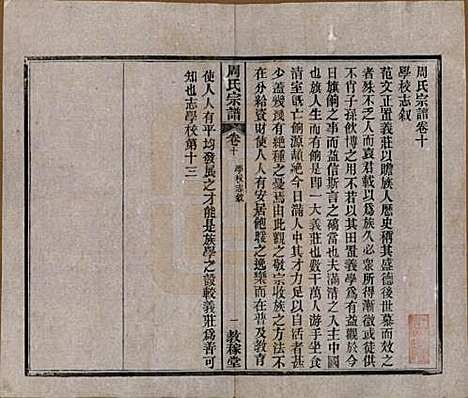 周氏宗譜卷十
學校志敘
范文正置義莊以贍族人歷史稱其盛德後世慕而效之
者殊不乏人而袁君載以爲族久必衆所得漸微或徒供
不肖子孫飲博之資不如以其田置義學爲有益顧觀今
日旗丁之事而益信斯言之碻當也夫滿清之入主中國
也旗人生而有餉是即一大義莊也數千萬人游手坐食
清室旣亡餉源頓絶今日滿人中其才力足以自活者甚
少蓋殘殘有絶種之憂焉由此觀之敬宗收族之方法不
在分給資財使人人有安居飽煖之逸樂而在普及教育
使人人有平均發展之才能是族學之設較義莊爲善可
知也志學校第十三
周氏宗譜
卷十
學校志敘
一
敦稼堂